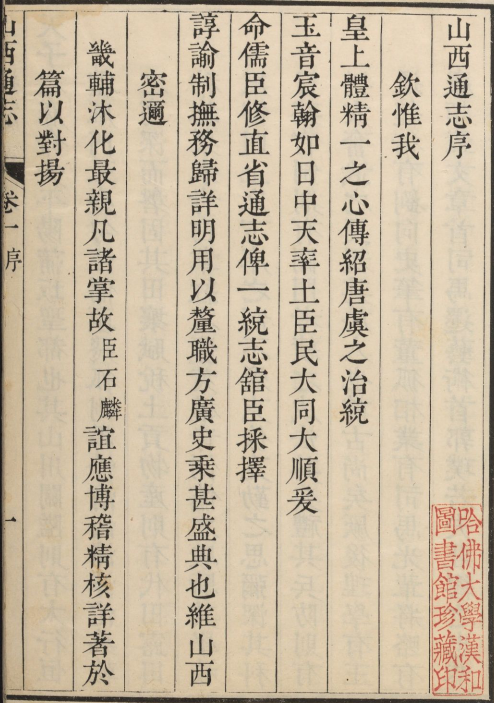 山西通志序
欽惟我
皇上體精一之心傳紹唐虞之治統
玉音宸翰如日中天率土臣民大同大順爰
命儒臣修直省通志俾一統志舘臣採擇
諄諭制撫務歸詳明用以釐職方廣史乘甚盛典也維山西
密邇
畿輔沐化最親凡諸掌故臣石麟誼應博稽精核詳著於
篇以對揚
山西通志 卷一 序 一
哈佛大學漢和
圖書館珍藏印